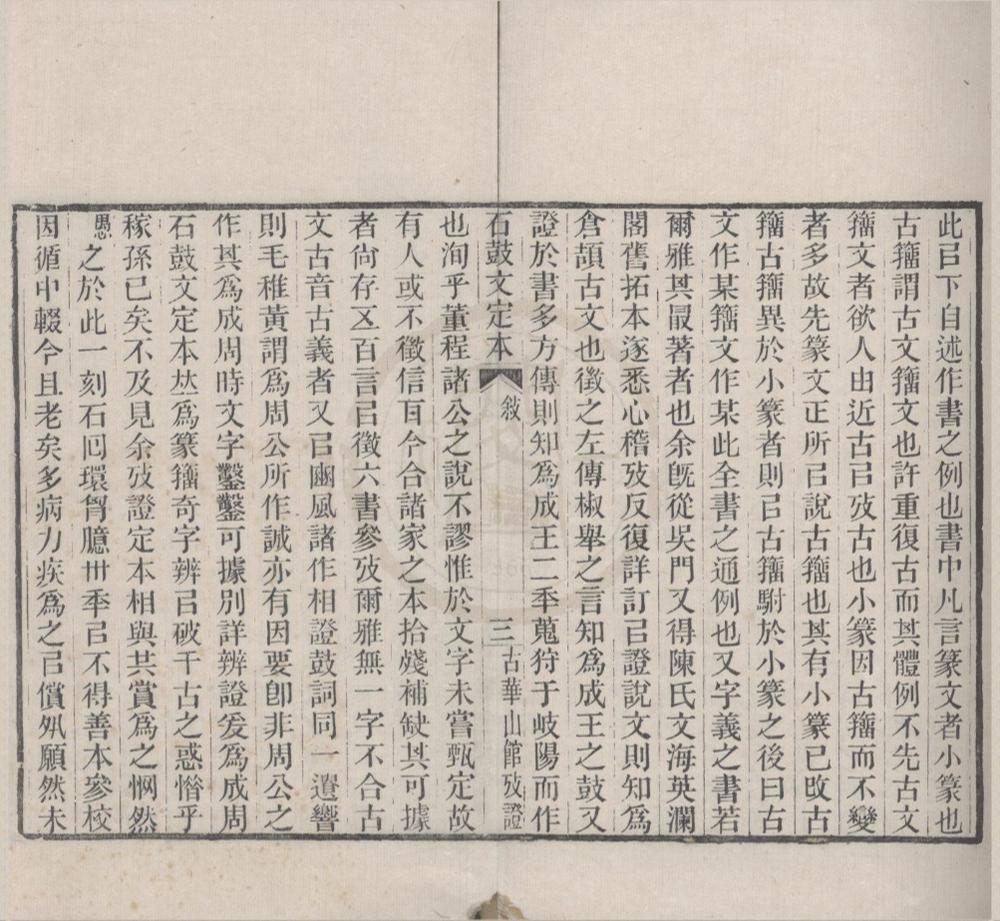 此㠯下自述作書之例也書中凡言篆文者小篆也
古籒謂古文籒文也許重復古而其體例不先古文
籒文者欲人由近古㠯攷古也小篆因古籒而不變
者多故先篆文正所㠯說古籒也其有小篆已改古
籒古籒異於小篆者則㠯古籒駙於小篆之後曰古
文作某籒文作某此全書之通例也又字義之書若
爾雅其冣著者也余旣從吳門又得陳氏文海英瀾
閣舊拓本逐悉心稽攷反復詳訂㠯證說文則知爲
倉頡古文也徵之左傳椒舉之言知爲成王之鼓又
證於書多方傳則知爲成王二秊蒐狩于岐陽而作
石鼓文定本 敘 三 古華山館攷證
也洵乎董程諸公之說不謬惟於文字未嘗甄定故
有人或不徵信百今合諸家之本拾殘補缺其可據
者尙存㐅百言㠯徵六書參攷爾雅無一字不合古
文古音古義者又㠯豳風諸作相證鼓詞同一遺響
則毛稚黃謂爲周公所作誠亦有因要卽非周公之
作其爲成周時文字鑿鑿可據別詳辨證爰爲成周
石鼓文定本竝爲篆籒奇字辨㠯破千古之惑惜乎
稼孫已矣不及見余攷證定本相與共賞爲之惘然
愚之於此一刻石囘環胷臆卅秊㠯不得善本參校
因循中輟今且老矣多病力疾爲之㠯償夙願然未